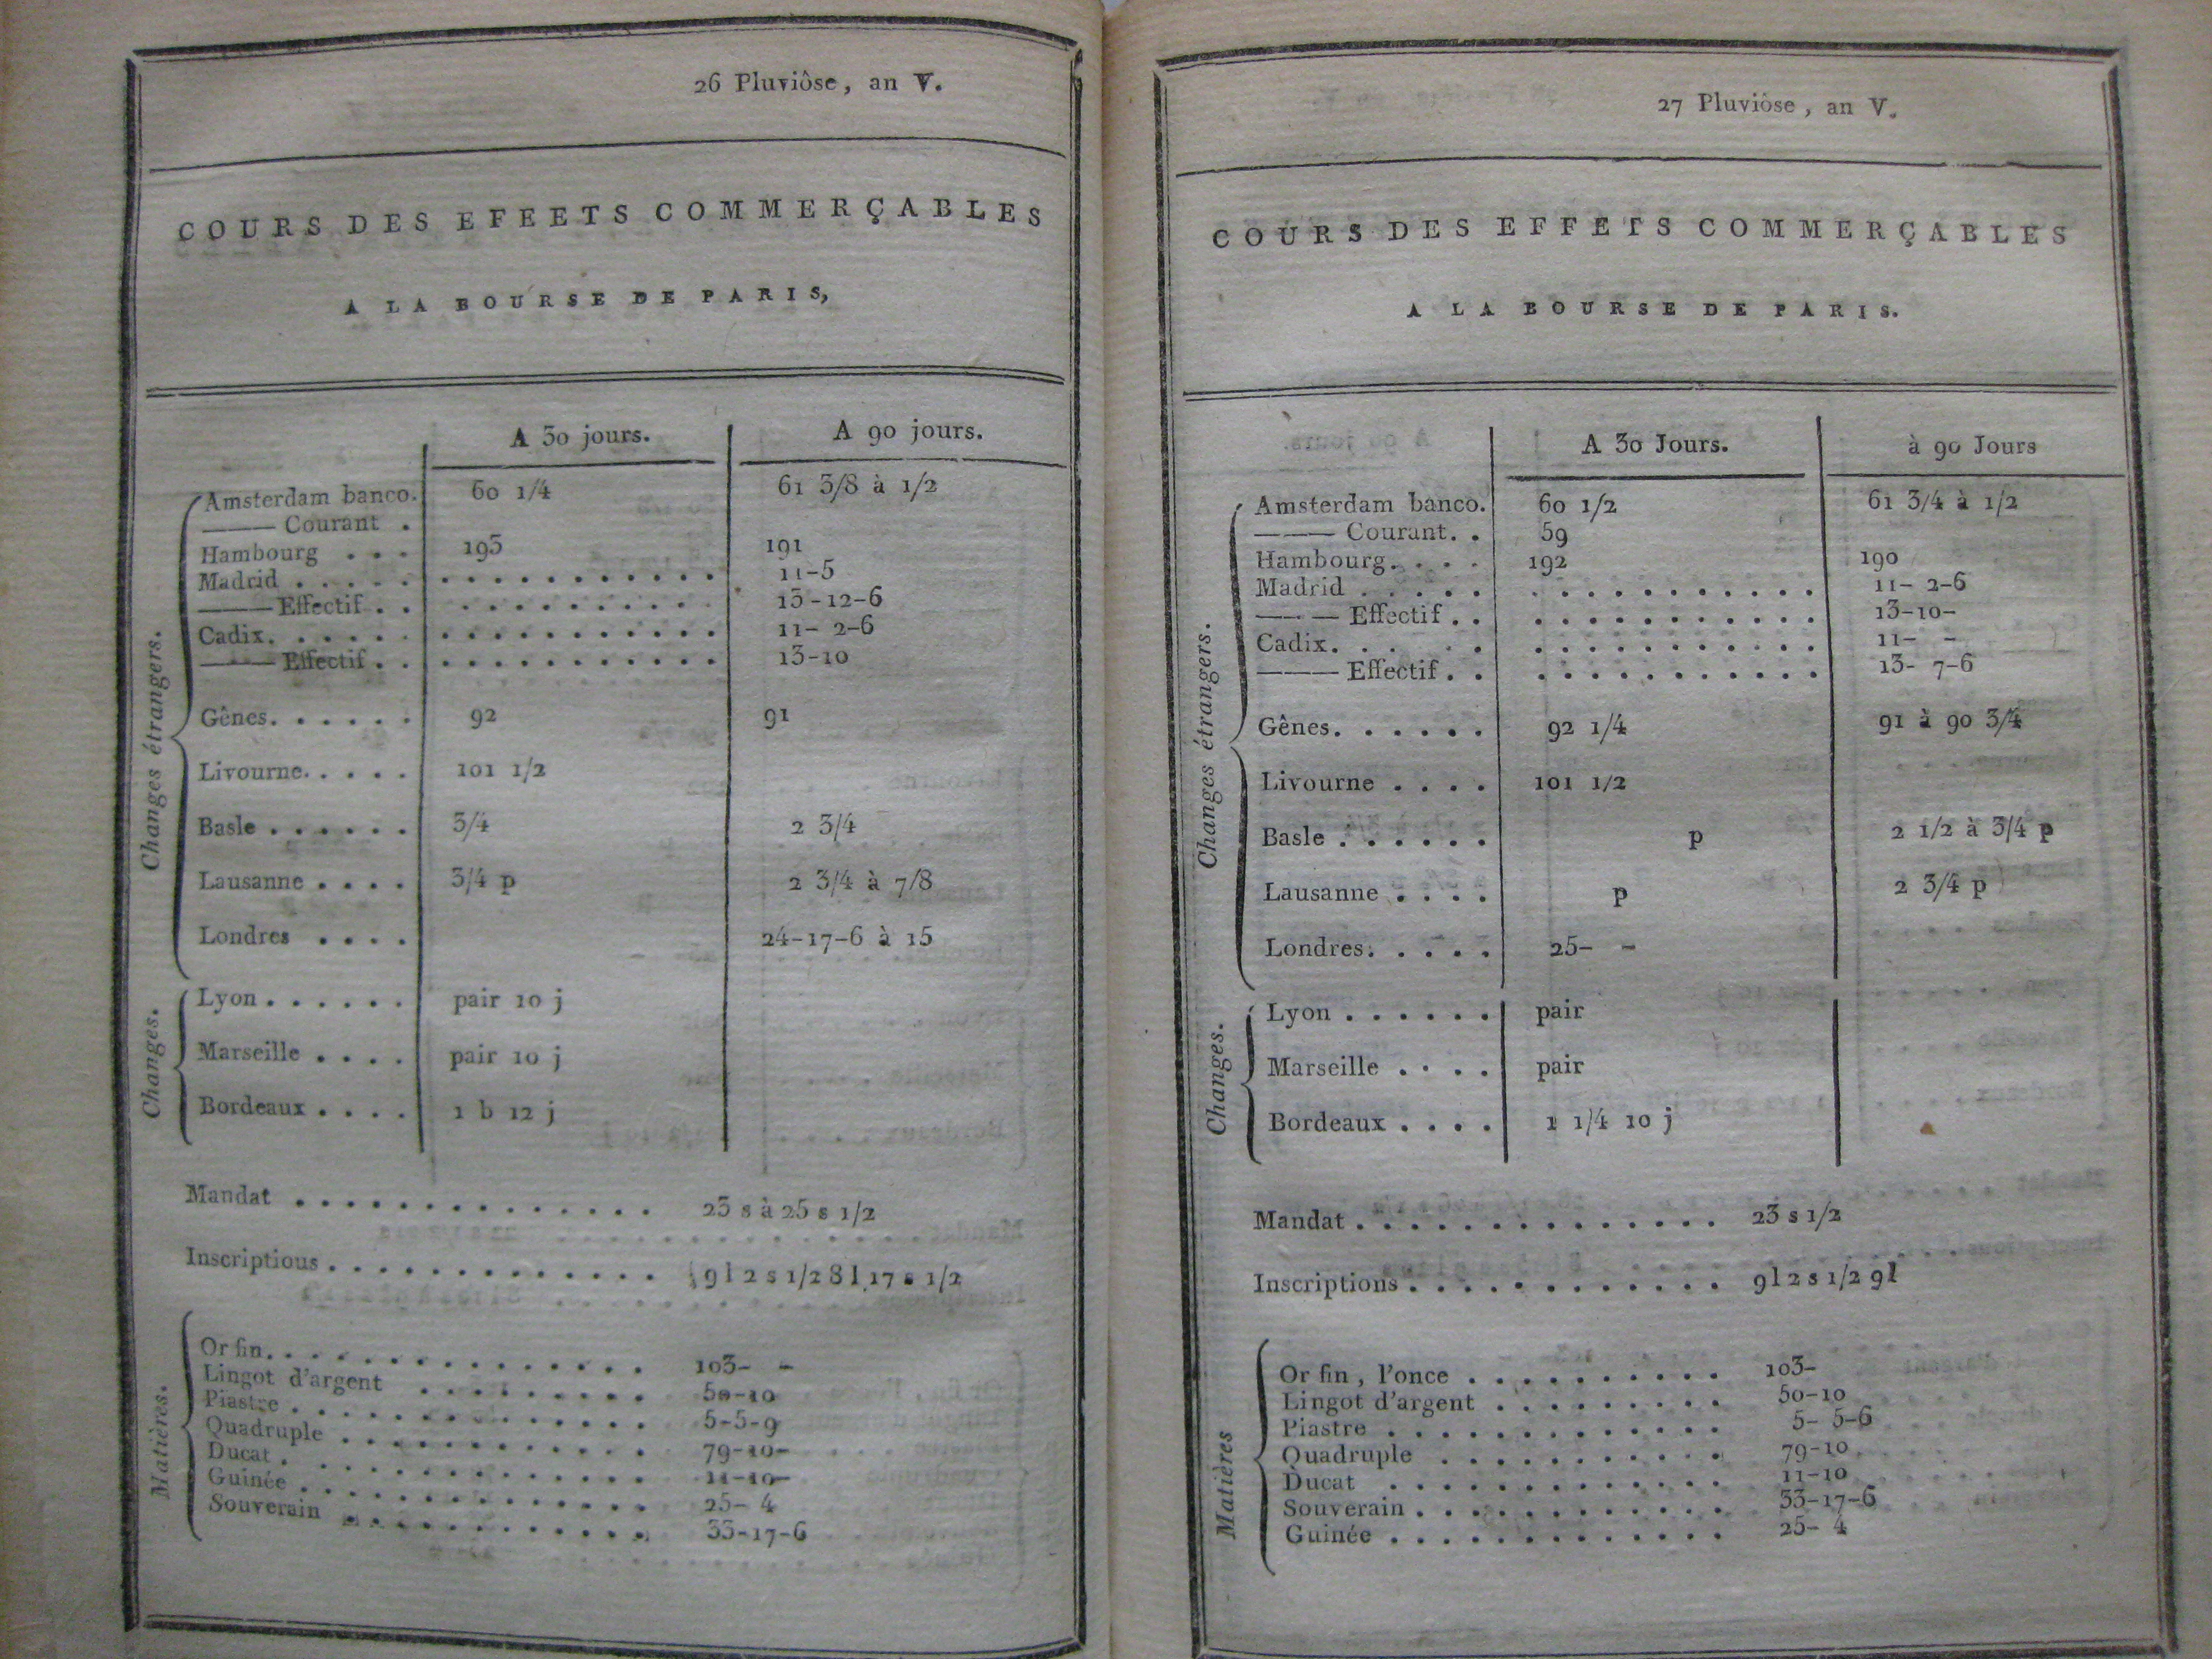 26 Pluviôse, an V.
COURS DES EFEETS COMMERÇABLES
A LA BOURSE DE PARIS,
A 30 jours. A 90 jours.
Changes étrangers.
Amsterdam banco. 60 1/4 61 3/8 à 1/2
——— Courant .
Hambourg . . . 193 191
Madrid . . . . . . . . . . . . . . . . 11-5
——— Effectif . . . . . . . . . . . . 13-12-6
Cadix. . . . . . . . . . . . . . . . . 11- 2-6
——— Effectif . . . . . . . . . . . . . 13-10
Gênes. . . . . . 92 91
Livourne. . . . . 101 1/2
Basle . . . . . . 3/4 2 3/4
Lausanne . . . . 3/4 p 2 3/4 à 7/8
Londres . . . . 24-17-6 à 15
Changes.
Lyon . . . . . . pair 10 j
Marseille . . . . pair 10 j
Bordeaux . . . . 1 b 12 j
Mandat . . . . . . . . . . . . . . . 23 s à 25 s 1/2
Inscriptious . . . . . . . . . . . . . 9 l 2 s 1/2 8 l 17 s 1/2
Matières.
Or fin. . . . . . . . . . . . . . . 103- -
Lingot d'argent . . . . . . . . . 50-10
Piastre . . . . . . . . . . . . . . 5-5-9
Quadruple . . . . . . . . . . . . 79-10-
Ducat . . . . . . . . . . . . . . 11-10-
Guinée . . . . . . . . . . . . . . 25- 4
Souverain . . . . . . . . . . . . 33-17-6
27 Pluviôse, an V.
COURS DES EFFETS COMMERÇABLES
A LA BOURSE DE PARIS.
A 30 Jours. à 90 Jours
Changes étrangers.
Amsterdam banco. 60 1/2 61 3/4 à 1/2
——— Courant. . 59
Hambourg. . . . 192 190
Madrid . . . . . . . . . . . . . . . . 11- 2-6
——— Effectif . . . . . . . . . . . . . 13-10-
Cadix. . . . . . . . . . . . . . . . 11- -
——— Effectif . . . . . . . . . . . . . 13- 7-6
Gênes. . . . . . 92 1/4 91 à 90 3/4
Livourne . . . . 101 1/2
Basle . . . . . . p 2 1/2 à 3/4 p
Lausanne . . . . p 2 3/4 p
Londres. . . . . 25- -
Changes.
Lyon . . . . . . pair
Marseille . . . . pair
Bordeaux . . . . 1 1/4 10 j
Mandat . . . . . . . . . . . . . . . 23 s 1/2
Inscriptions . . . . . . . . . . . . . 9 l 2 s 1/2 9 l
Matières
Or fin, l'once . . . . . . . . . . 103-
Lingot d'argent . . . . . . . . . 50-10
Piastre . . . . . . . . . . . . . 5- 5-6
Quadruple . . . . . . . . . . . 79-10
Ducat . . . . . . . . . . . . . 11-10
Souverain . . . . . . . . . . . . 33-17-6
Guinée . . . . . . . . . . . . . 25- 4